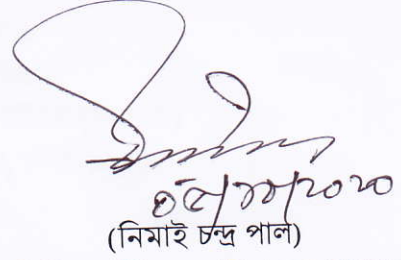 ০৫/১১/২০২০
(নিমাই চন্দ্র পাল)